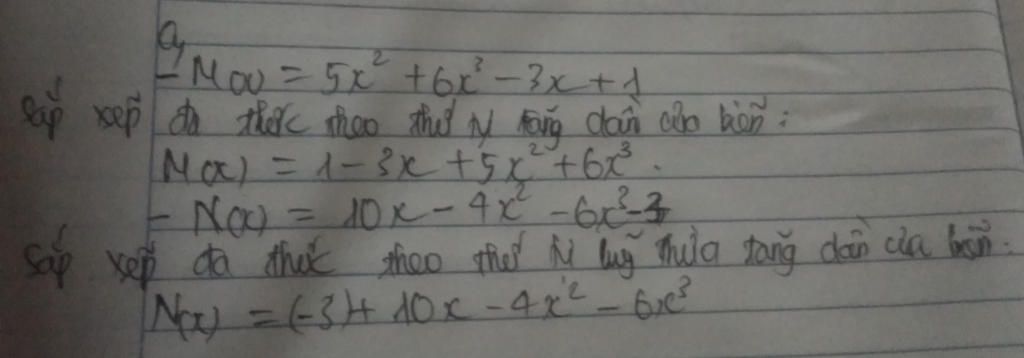 a,
- M(x) = 5x² + 6x³ - 3x + 1
Sắp xếp đa thức theo thứ tự tăng dần của biến:
M(x) = 1 - 3x + 5x² + 6x³.
- N(x) = 10x - 4x² - 6x³ - 3
Sắp xếp đa thức theo thứ tự luỹ thừa tăng dần của biến.
N(x) = (-3) + 10x - 4x² - 6x³